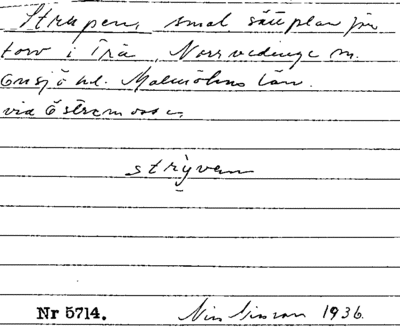 Strupen, smal sättplan för
torv i Trä, Norrvedinge sn.
Onsjö hd. Malmöhus län.
via Östremosse,
strỳven
Nr 5714. 1936.